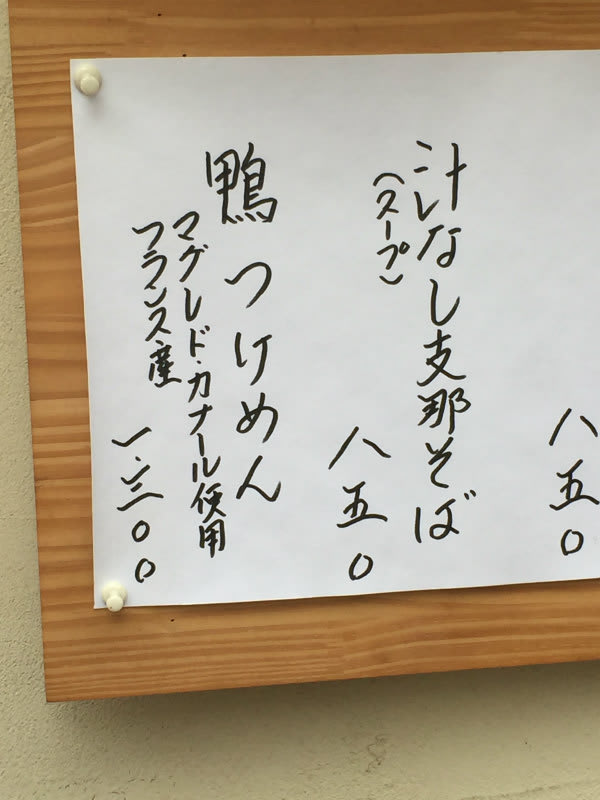 八五〇
汁なし支那そば
(スープ)
八五〇
鴨つけめん
マグレド・カナール使用
フランス産
一、三〇〇